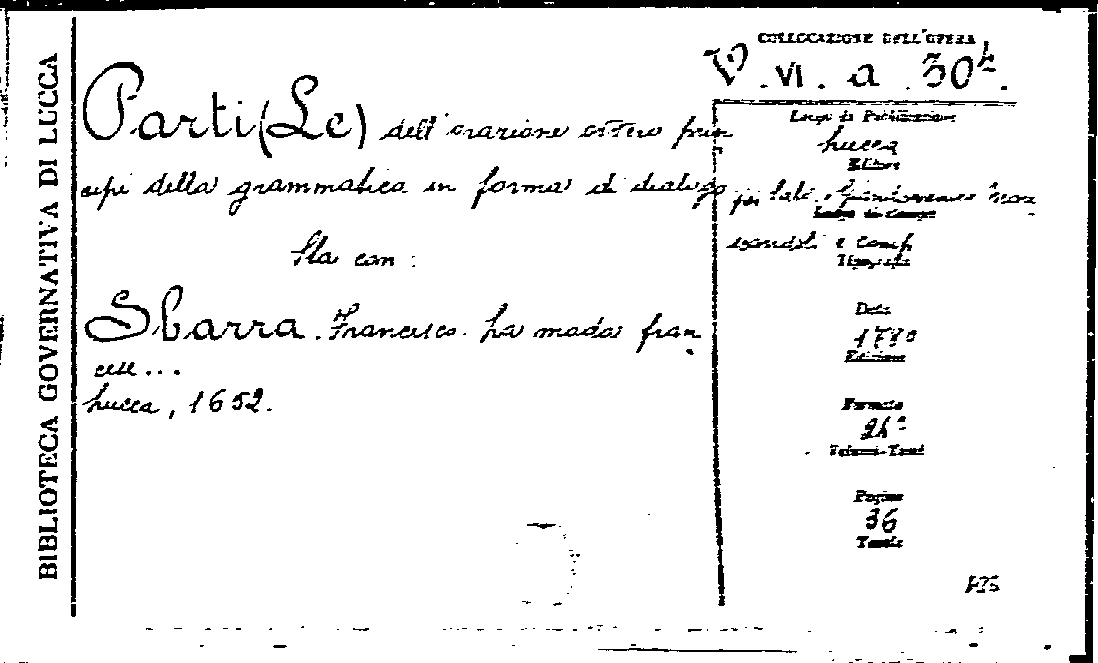 BIBLIOTECA GOVERNATIVA DI LUCCA
COLLOCAZIONE DELL'OPERA
B. VI. a. 30
Parti (Le) dell'orazione ossero prin
cipi della grammatica in forma di dialogo
Sta con:
Sbarra. Francesco. La moda fran
cese...
Lucca, 1652.
Luogo di Pubblicazione
Lucca
Editore
per
Luogo di Stampa
e Comp
Tipografia
Data
Edizione
Formato
24°
Volumi-Tomi
Pagine
36
Tavole